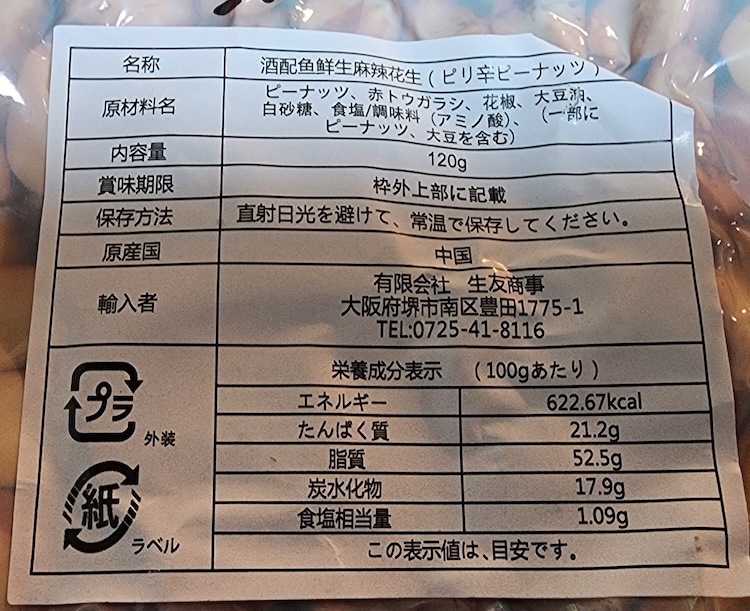 名称 酒配鱼鲜生麻辣花生(ピリ辛ピーナッツ)
原材料名 ピーナッツ、赤トウガラシ、花椒、大豆油、
白砂糖、食塩/調味料(アミノ酸)、(一部に
ピーナッツ、大豆を含む)
内容量 120g
賞味期限 枠外上部に記載
保存方法 直射日光を避けて、常温で保存してください。
原産国 中国
輸入者 有限会社 生友商事
大阪府堺市南区豊田1775-1
TEL:0725-41-8116
プラ 外装
紙 ラベル
栄養成分表示 (100gあたり)
エネルギー 622.67kcal
たんぱく質 21.2g
脂質 52.5g
炭水化物 17.9g
食塩相当量 1.09g
この表示値は、目安です。